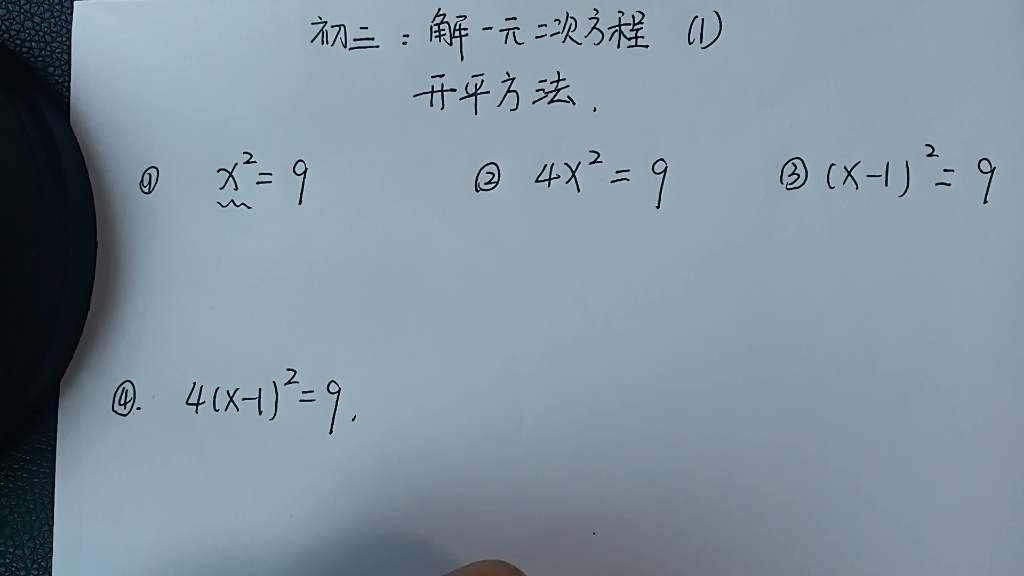 初三：解一元二次方程 (1)
开平方法.
① x²=9 ② 4x²=9 ③ (x-1)²=9
④. 4(x-1)²=9.